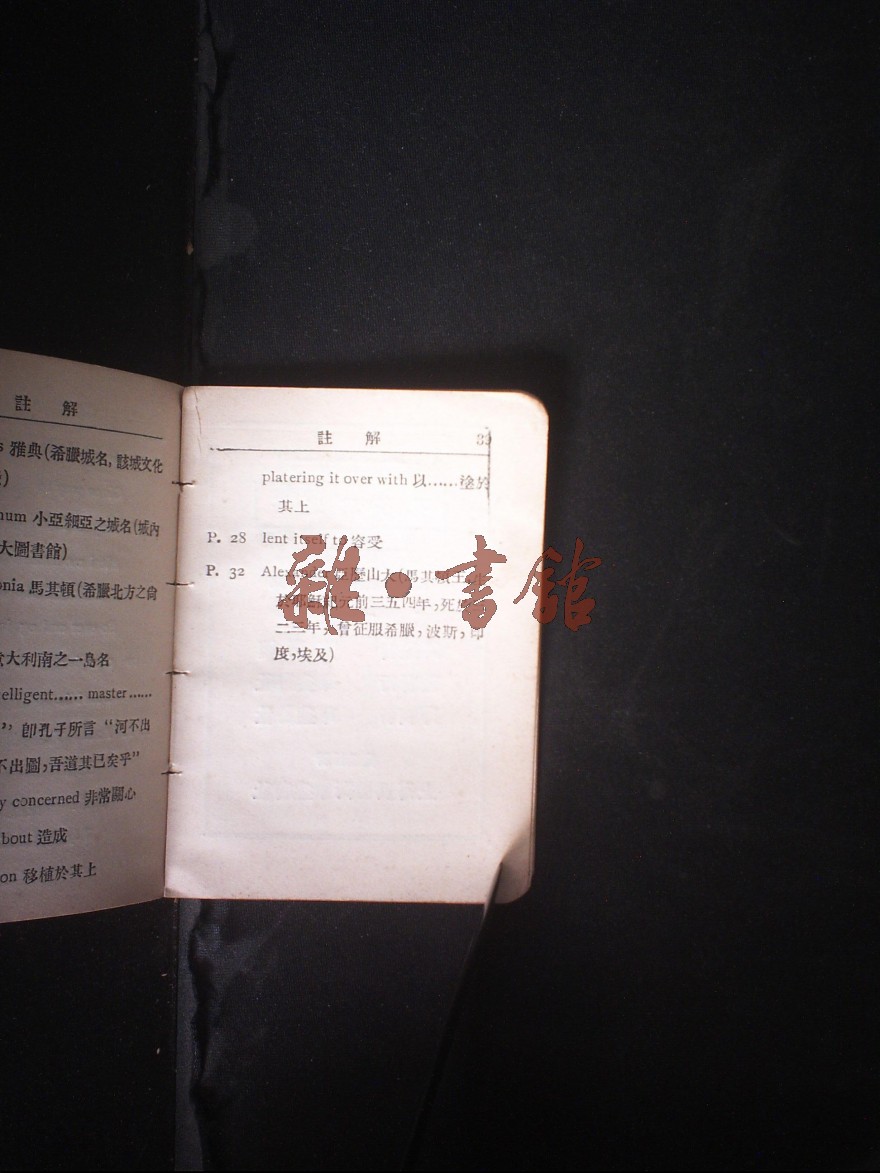 註 解
s 雅典(希臘城名, 該城文化
)
num 小亞細亞之城名(城內
大圖書館)
onia 馬其頓(希臘北方之
大利南之一島名
elligent...... master......
”, 卽孔子所言 “河不出
不出圖,吾道其已矣乎”
y concerned 非常關心
bout 造成
on 移植於其上
註 解
platering it over with 以......塗於
其上
P. 28 lent itself to 容受
P. 32 山大(馬其頓王,
元前三五四年,死
二三年,曾征服希臘, 波斯, 印
度,埃及)
雜·書館